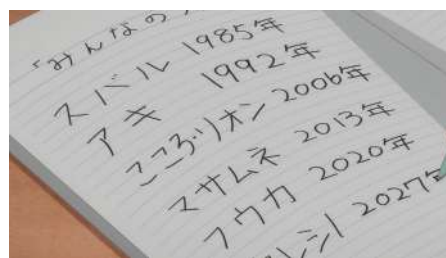 「みんなの
スバル 1985年
アキ 1992年
こころ/リオン 2006年
マサムネ 2013年
フウカ 2020年
ウレシノ 2027年